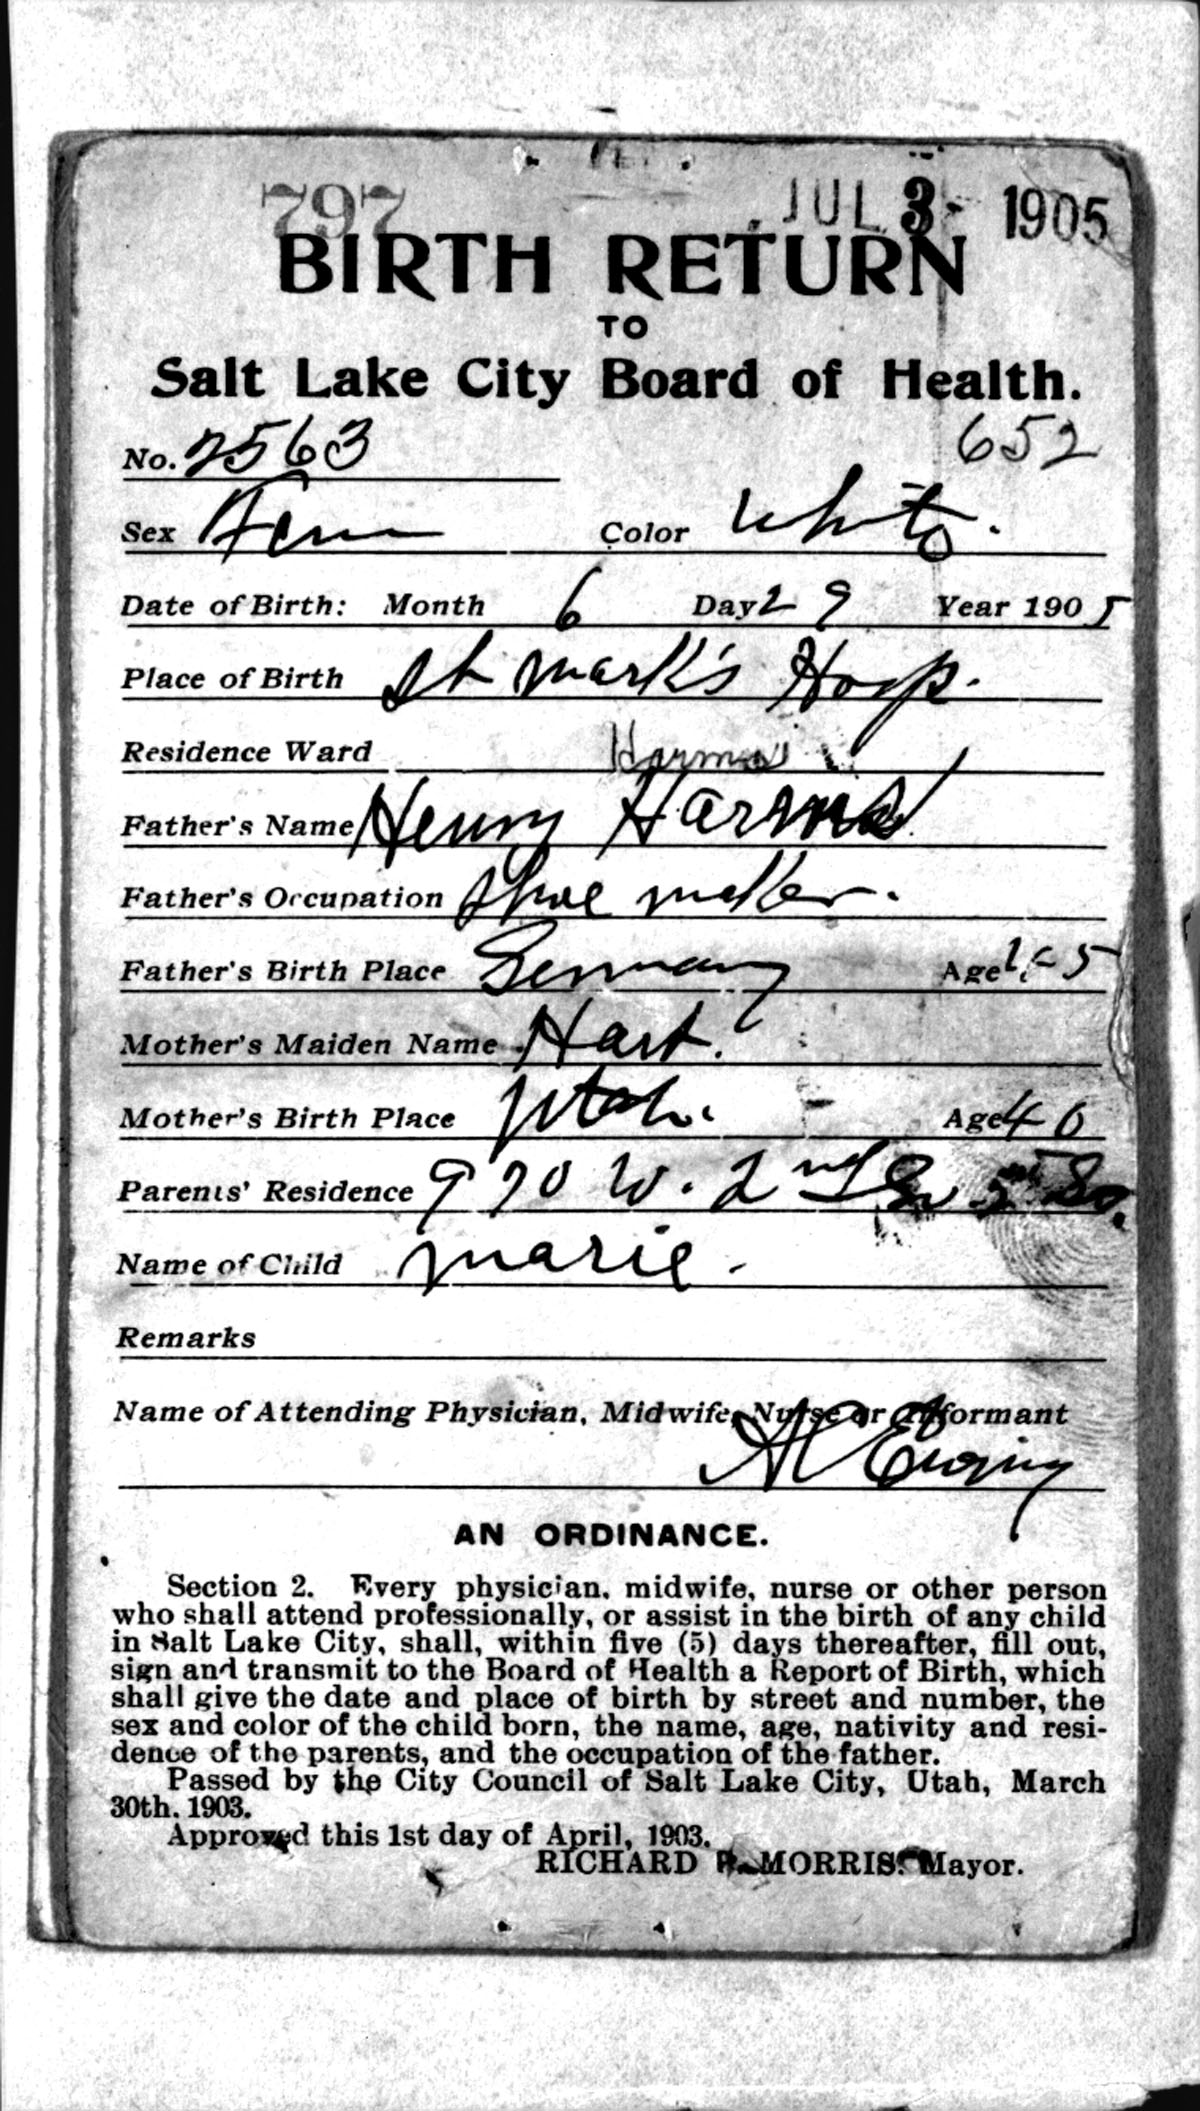 797 JUL 3 1905
BIRTH RETURN
TO
Salt Lake City Board of Health.
652
No. 2563
Sex Fem Color White.
Date of Birth: Month 6 Day 29 Year 1905
Place of Birth St Mark's Hosp.
Residence Ward
Father's Name Henry Harms
Father's Occupation Shoe maker.
Father's Birth Place Germany Age
Mother's Maiden Name Hart.
Mother's Birth Place Utah. Age 40
Parents' Residence 970 W. 2nd So.
Name of Child Marie.
Remarks
Name of Attending Physician, Midwife, Nurse or Informant
Ewing
AN ORDINANCE.
Section 2. Every physician, midwife, nurse or other person
who shall attend professionally, or assist in the birth of any child
in Salt Lake City, shall, within five (5) days thereafter, fill out,
sign and transmit to the Board of Health a Report of Birth, which
shall give the date and place of birth by street and number, the
sex and color of the child born, the name, age, nativity and resi-
dence of the parents, and the occupation of the father.
Passed by the City Council of Salt Lake City, Utah, March
30th, 1903.
Approved this 1st day of April, 1903.
RICHARD P. MORRIS, Mayor.